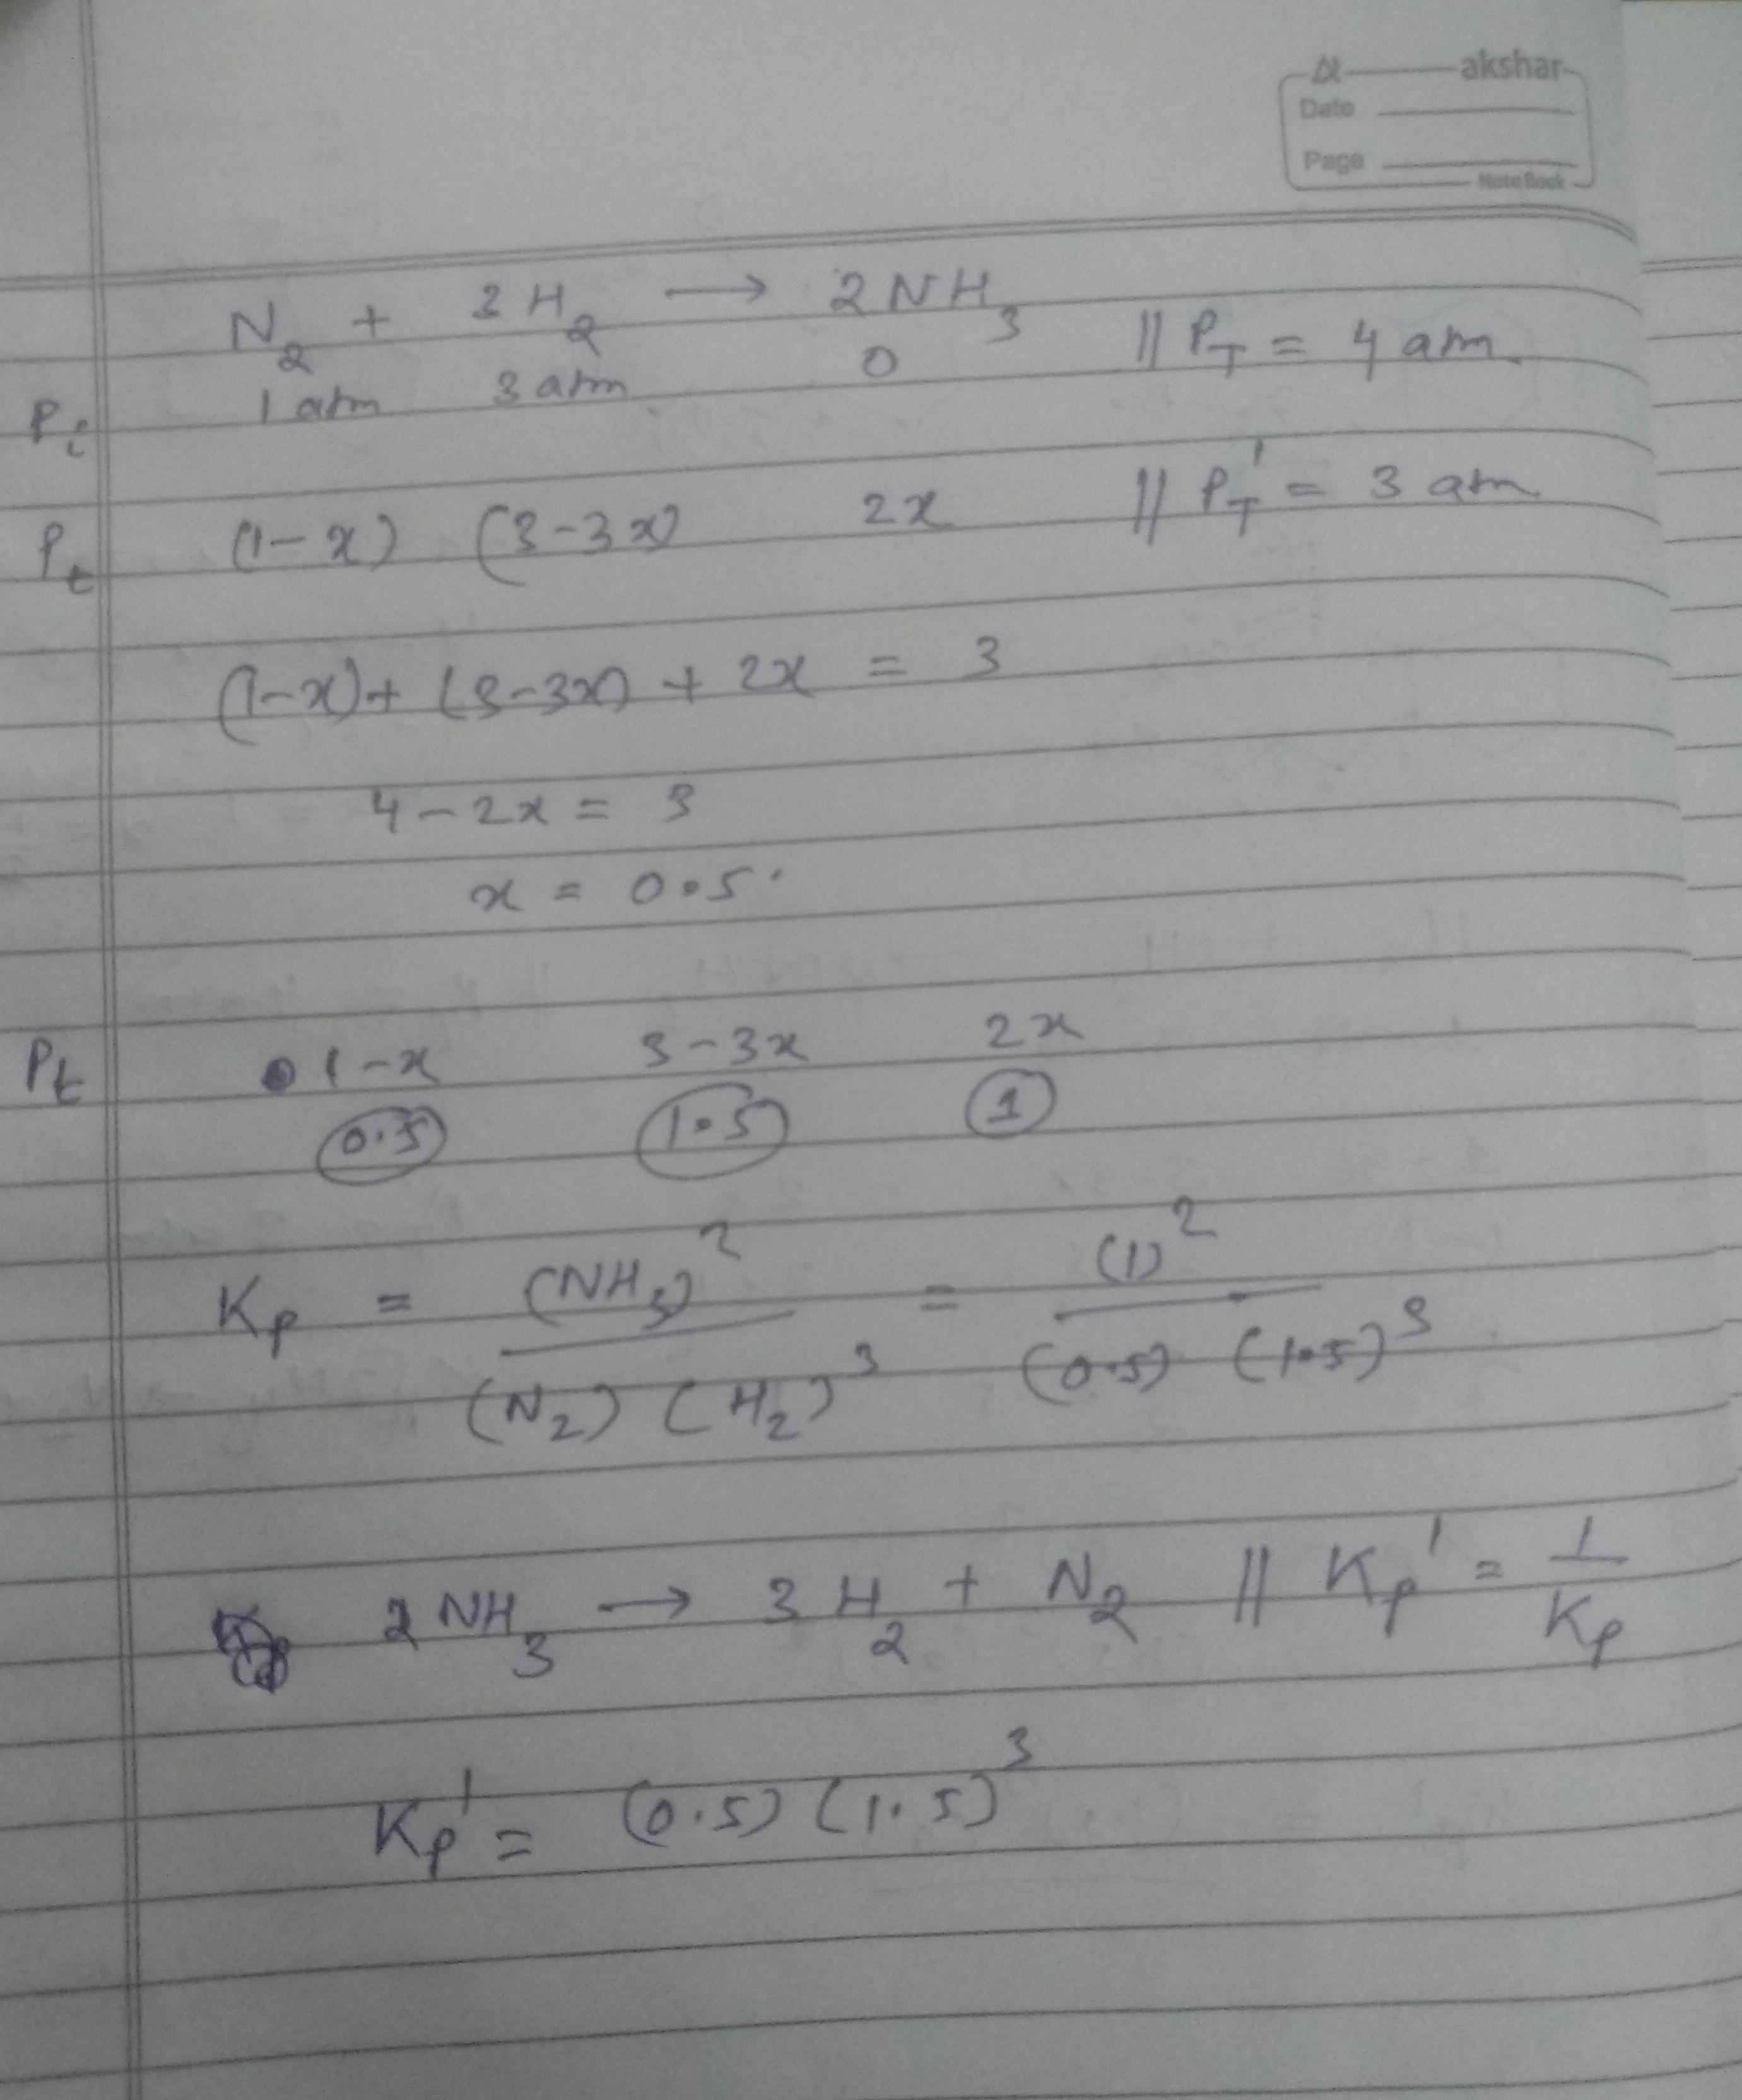 akshar
Date
Page
NoteBook
N₂ + 3H₂ → 2NH₃
Pᵢ 1 atm 3 atm 0 || P_T = 4 atm
Pₜ (1-x) (3-3x) 2x || P_T' = 3 atm
(1-x) + (3-3x) + 2x = 3
4 - 2x = 3
x = 0.5
Pₜ 1-x 3-3x 2x
0.5 1.5 1
Kp = (NH₃)² / (N₂) (H₂)³ = (1)² / (0.5) (1.5)³
2NH₃ → 3H₂ + N₂ || Kp' = 1 / Kp
Kp' = (0.5) (1.5)³